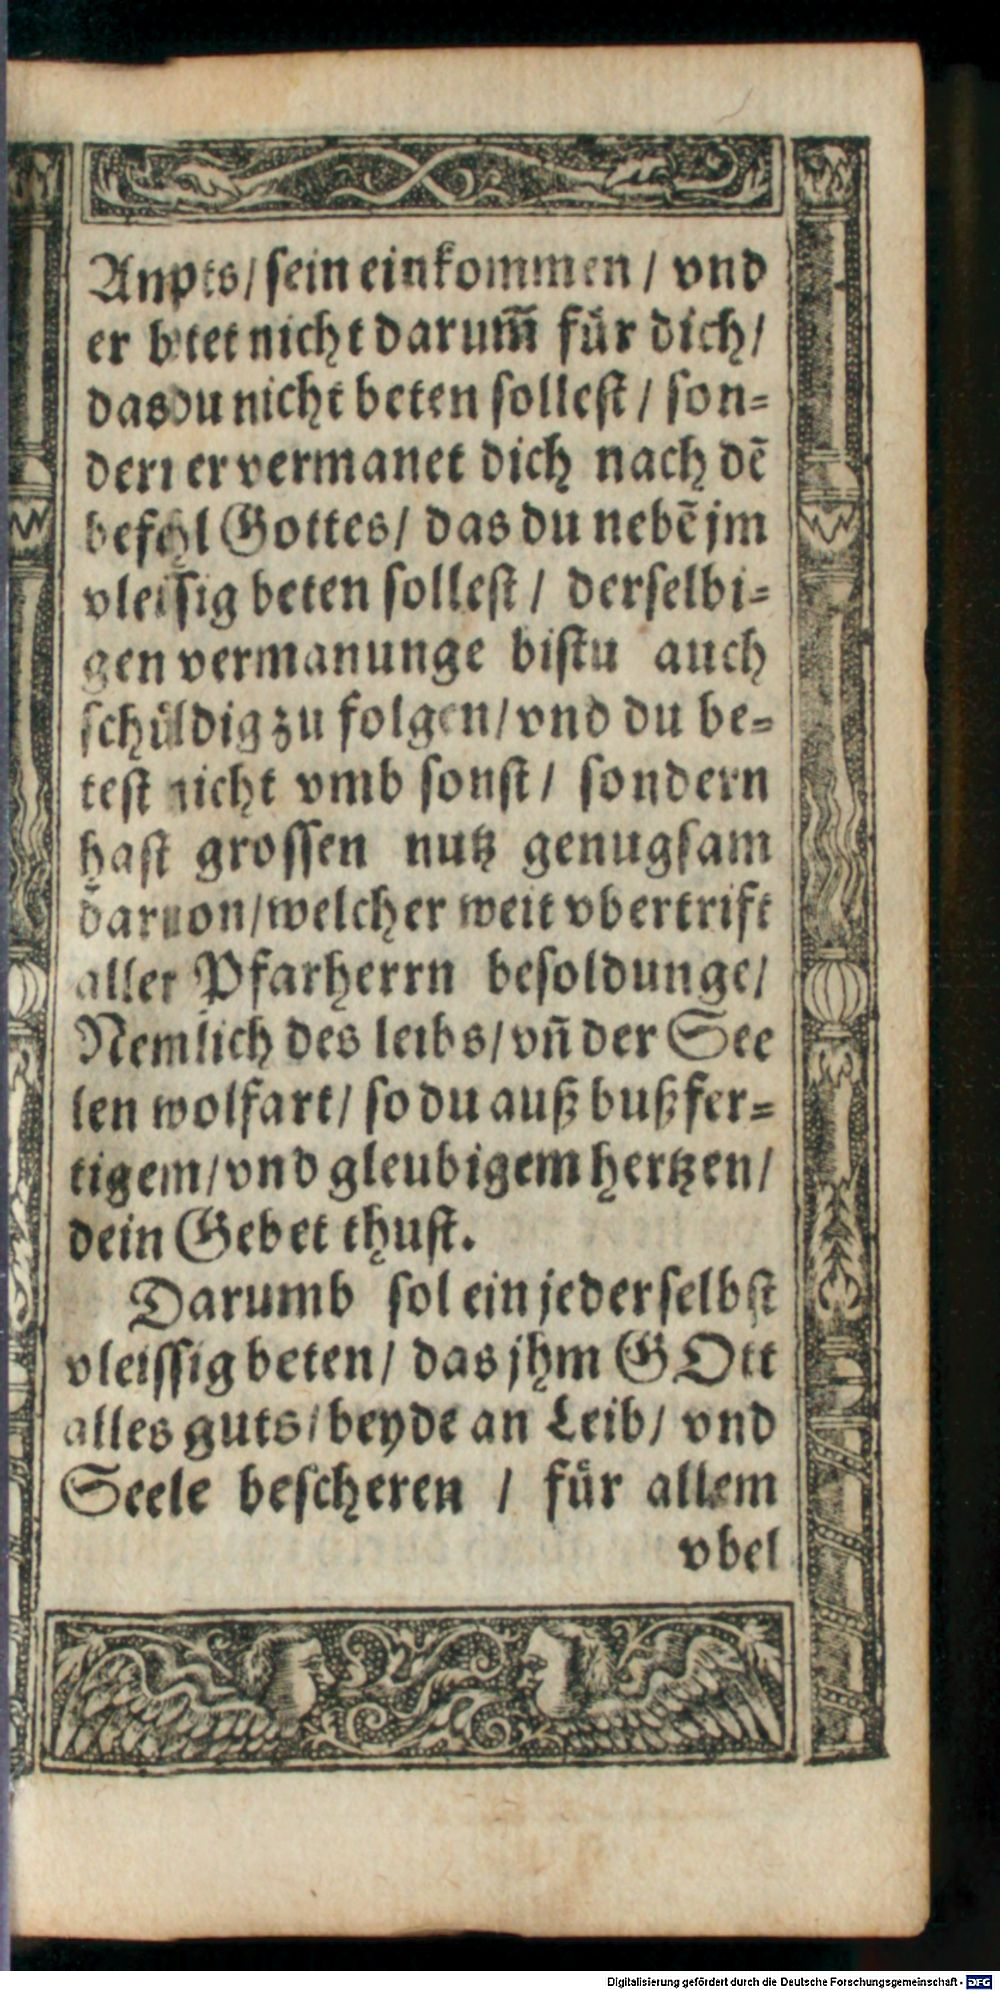 Ampts / sein einkommen / vnd
er betet nicht darum̃ fuͤr dich /
das du nicht beten sollest / son=
dern er vermanet dich nach dē
befehl Gottes / das du nebē jm
vleissig beten sollest / derselbi=
gen vermanunge bistu auch
schuͤldig zu folgen / vnd du be=
test nicht vmb sonst / sondern
hast grossen nutz genugsam
daruon / welcher weit vbertrift
aller Pfarherrn besoldunge /
Nemlich des leibs / vn̄ der See
len wolfart / so du auß bußfer=
tigem / vnd gleubigem hertzen /
dein Gebet thust.
Darumb sol ein jeder selbst
vleissig beten / das jhm GOtt
alles guts / beyde an Leib / vnd
Seele bescheren / fuͤr allem
vbel
Digitalisierung gefördert durch die Deutsche Forschungsgemeinschaft - DFG